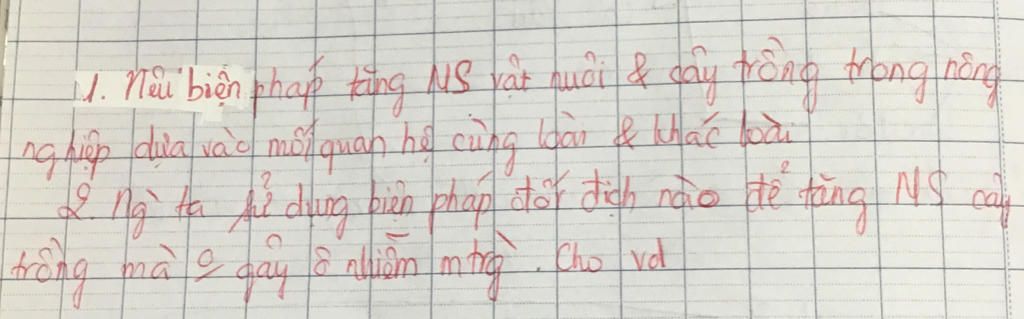 1. Nêu biện pháp tăng NS vật nuôi & cây trồng trong nông
nghiệp dựa vào mối quan hệ cùng loài & khác loài
2. Ng` ta sử dụng biện pháp đối địch nào để tăng NS cây
trồng mà 0 gây ô nhiễm mtrg`. Cho vd